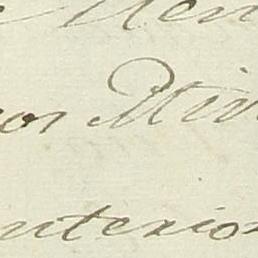 Men
or Min
nterior